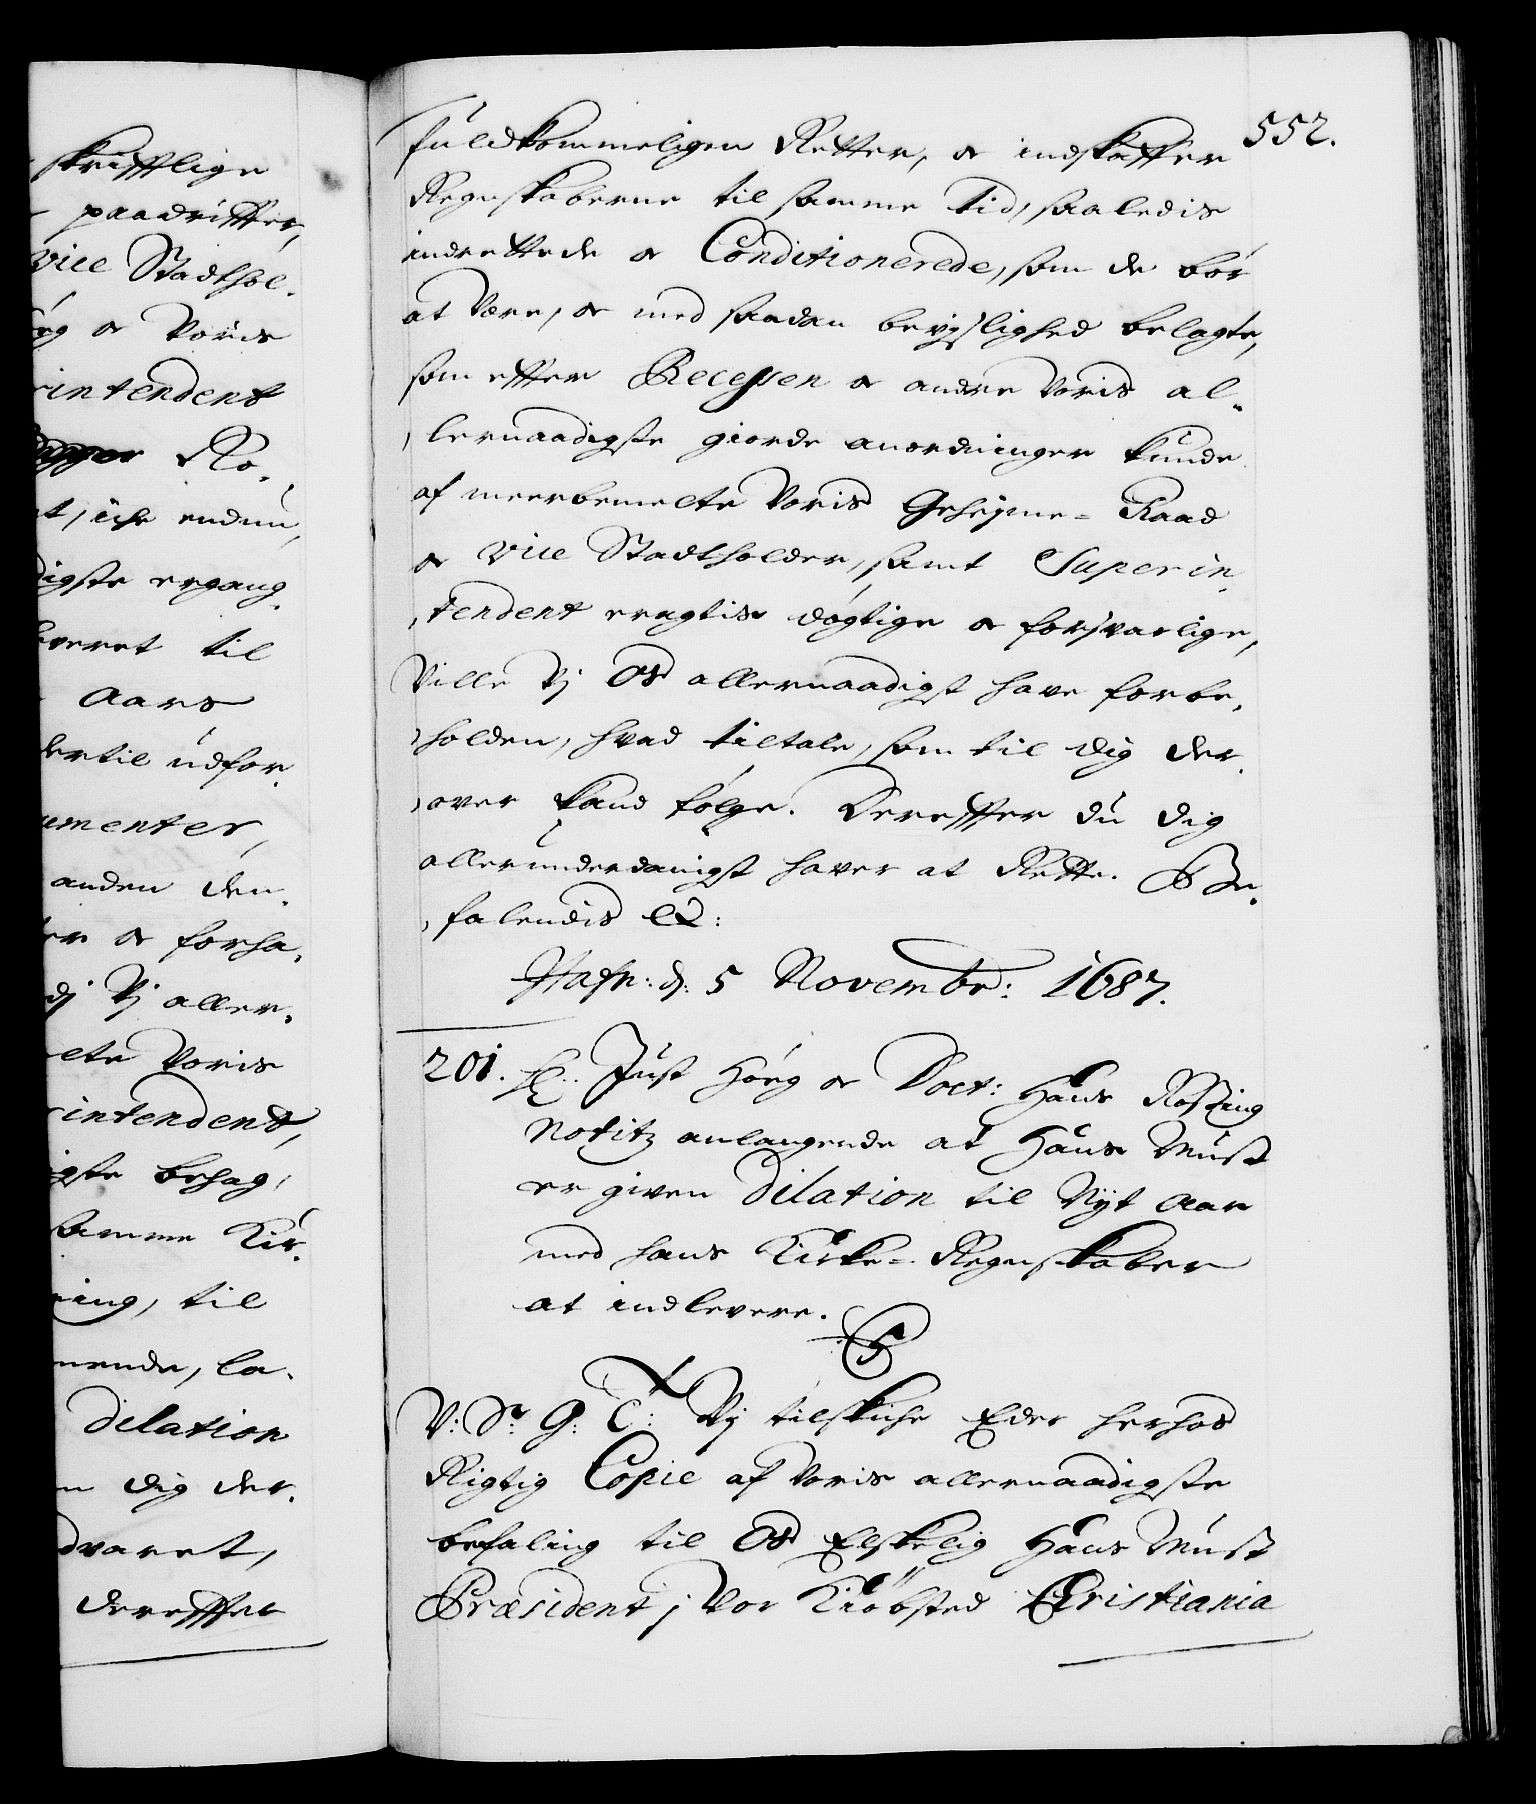 skrifftlige
paadrifter,
Vice Stadthol-
Høeg oc Voris
rintendent
Ro-
t, iche endnu,
digste ergang-
leveret til
Aars
dertil udfor-
umenter,
anden den-
er oc forha-
dj Vj aller-
elte Voris
rintendent,
igste behag,
samme Kir-
ning, til
nende, la-
Dilation
n dig der-
dvaret,
Derefter
552.
fuldkommeligen Retter, oc indskaffer
Regnskaberne til samme tid, saaledis
indrettede oc Conditionerede, som de bør
at være, oc med saadan beviislighed belagte,
som effter Recessen oc andre Voris al-
lernaadigste giorde anordninger kunde
af meerbemelte Voris Geheyme-Raad
oc Vice Stadtholder, samt Superin-
tendent eragtis døgtige oc forsvarlige,
Ville Vj Os allernaadigst have forbe-
holden, hvad tiltale, som til dig der-
over kand følge. Dereffter du dig
allerunderdanigst haver at Rette. Be-
falendis etc:
Hafn: d: 5 Novembr: 1687.
201. H: Just Høeg oc Doct: Hans Rosing
Notitz anlangende at Hans Must
er given Dilation til Nyt Aar
med hans Kirke-Regnskaber
at indlevere.
C5
V: S: G: T: Vj tilskiche Eder herhos
Rigtig Copie af Voris allernaadigste
befaling til Os Elskelig Hans Must
Præsident j Vor Kiöbsted Christiania